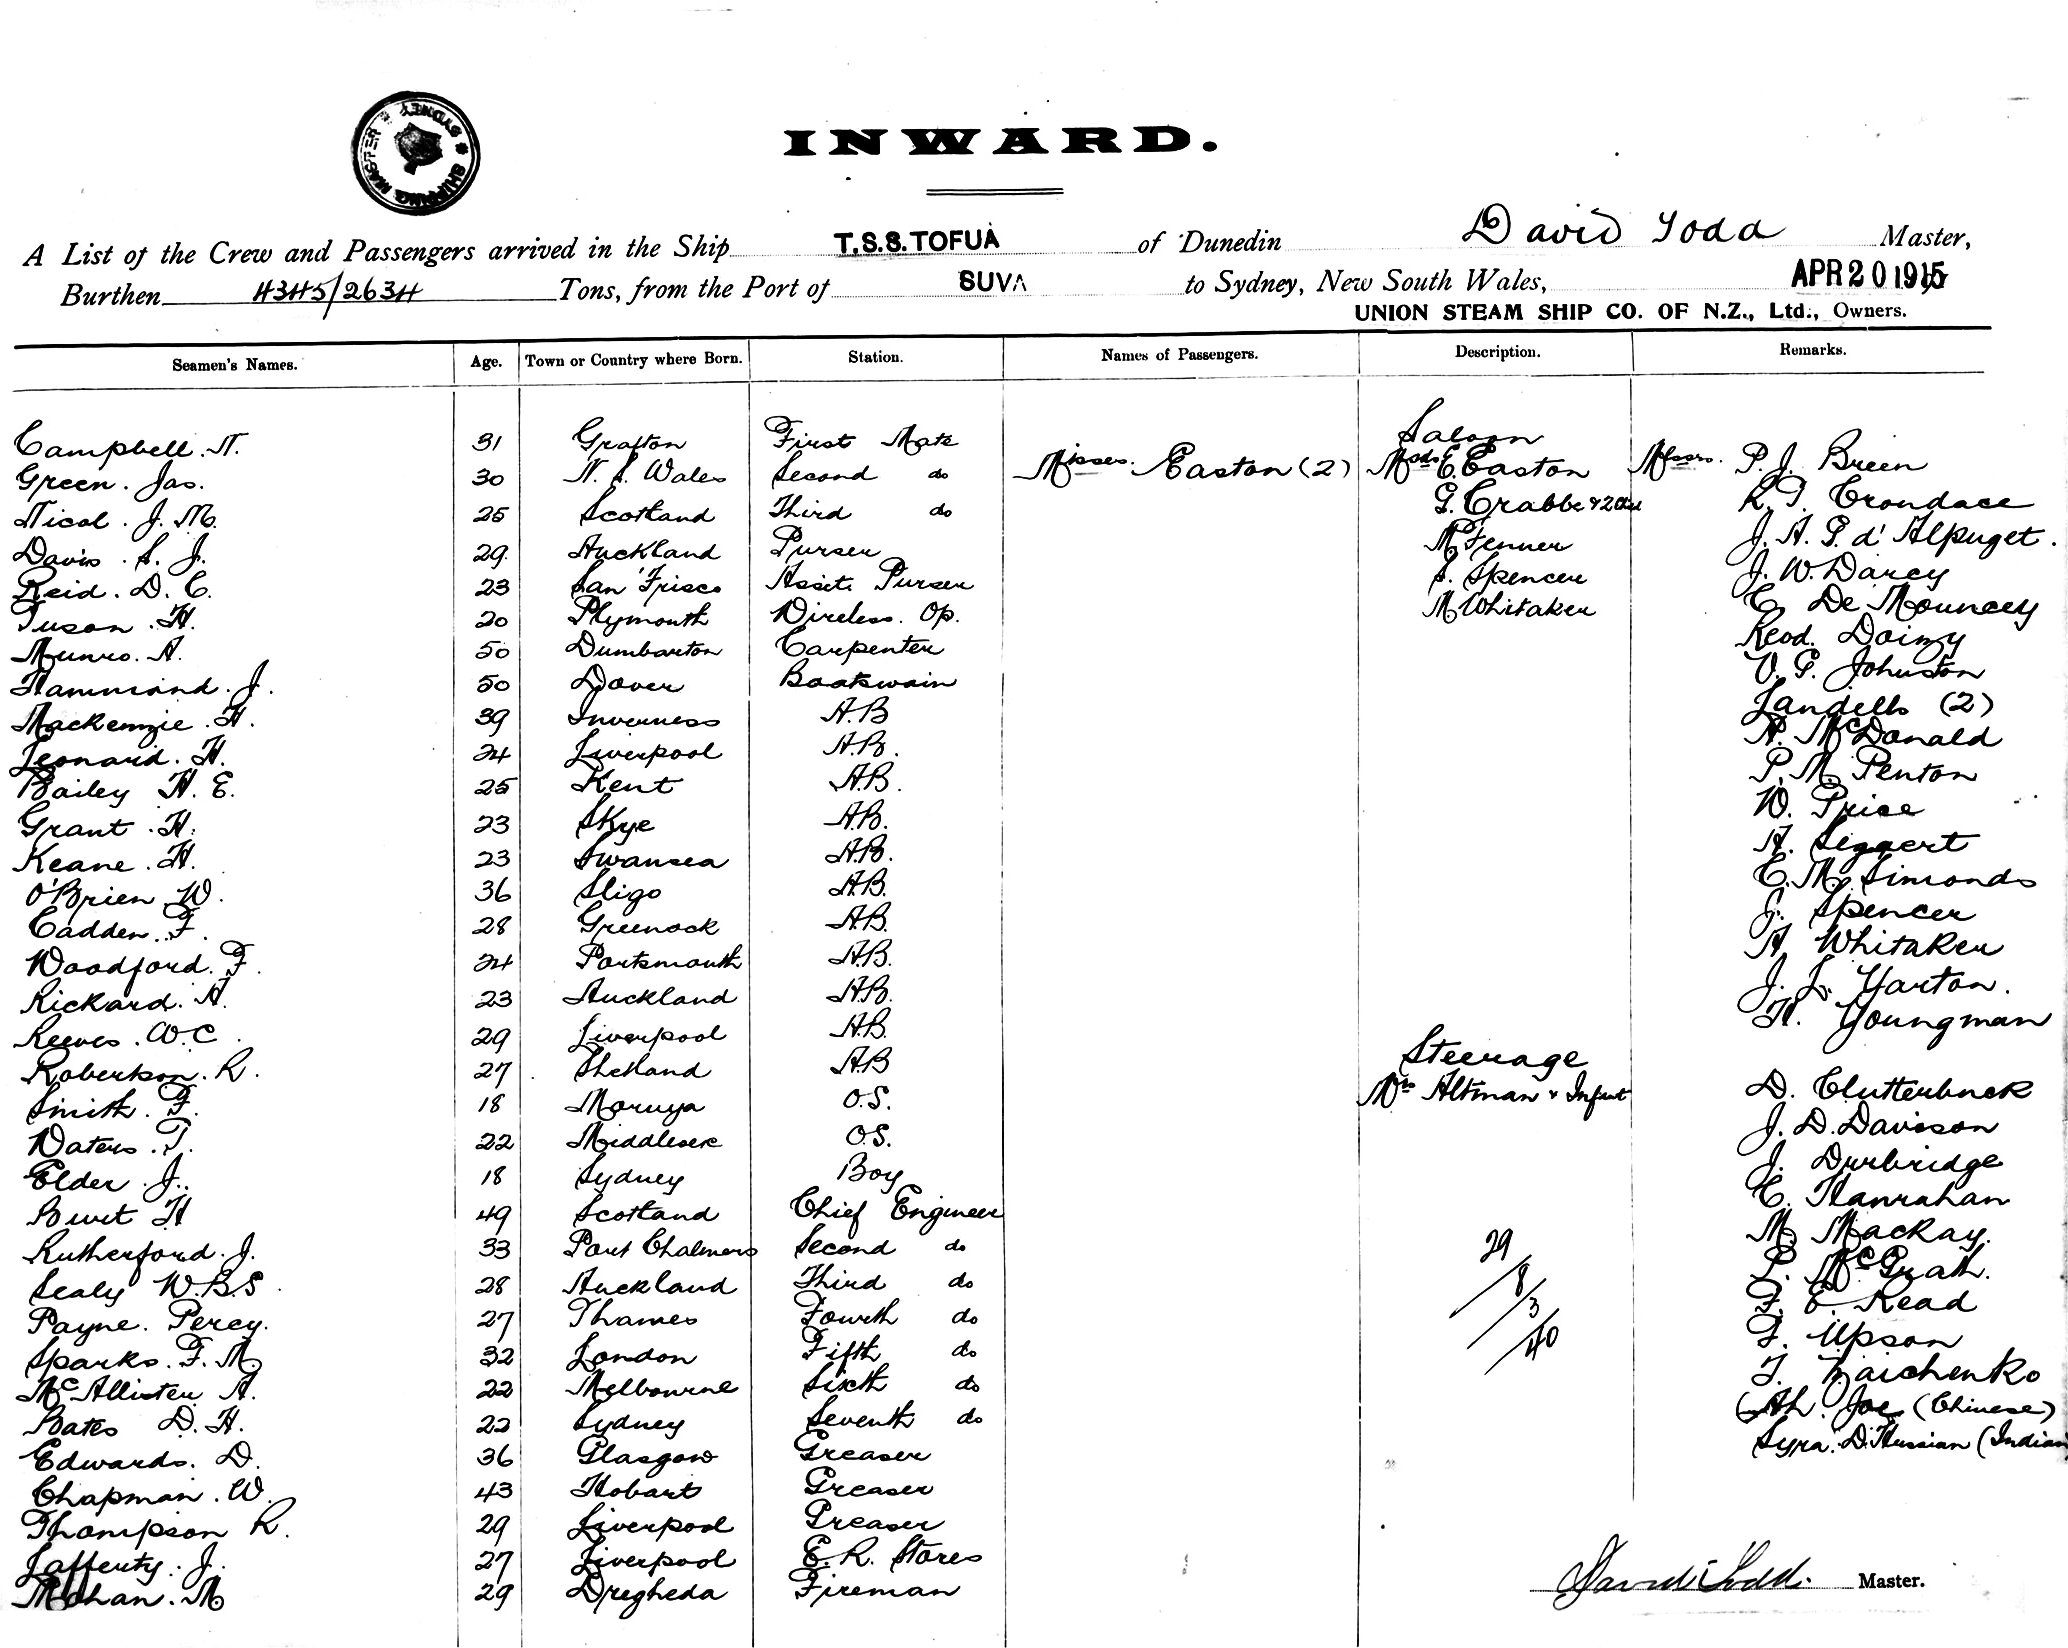 SHIPPING MASTER * SYDNEY *
INWARD.
A List of the Crew and Passengers arrived in the Ship T.S.S. TOFUA of Dunedin David Todd Master,
Burthen 4345/2634 Tons, from the Port of SUVA to Sydney, New South Wales, APR 20 1915
UNION STEAM SHIP CO. OF N.Z., Ltd., Owners.
Seamen's Names. Age. Town or Country where Born. Station. Names of Passengers. Description. Remarks.
Saloon
Campbell. N. 31 Grafton First Mate
Green. Jas. 30 N. S. Wales Second do Misses. Easton (2) Mesds E Easton Messrs. P. J. Breen
Nicol. J. M. 25 Scotland Third do G. Crabbe & 2 Chd R. T. Crondace
Davis. S. J. 29 Auckland Purser M Fenner J. A. P. d'Alpuget.
Reid. D. C. 23 San 'Frisco Asst. Purser J. Spencer J. W. Darcy
Tuson. H. 20 Plymouth Wireless. Op. M Whitaker C. De Mouncey
Munro. A. 50 Dumbarton Carpenter Revd.
Hammond. J. 50 Dover Boatswain V. G. Johnston
Mackenzie. H. 39 Inverness A.B Landells (2)
Leonard. H. 24 Liverpool A.B. A. McDonald
Bailey H. E. 25 Kent A.B. P. M. Penton
Grant. H. 23 Skye A.B. W. Price
Keane. H. 23 Swansea A.B. A. Seggert
O'Brien W. 36 Sligo A.B. E. M. Simonds
Cadden. F. 28 Greenock A.B. J. Spencer
Woodford. F. 24 Portsmouth A.B. A Whitaker
Rickard. A. 23 Auckland A.B. J. L. Yarton.
Reeves. W. C. 29 Liverpool A.B. H. Youngman
Robertson. R. 27 Shetland A.B Steerage
Smith. F. 18 Moruya O.S. Mrs Altman & Infant D. Clutterbuck
Waters. T. 22 Middlesex O.S. J. D. Davison
Elder. J. 18 Sydney Boy J. Durbridge
Burt H 49 Scotland Chief Engineer C. Hanrahan
Rutherford. J. 33 Port Chalmers Second do 29 M Mackay.
Sealy W. B. S. 28 Auckland Third do 8 P. McGrath.
Payne. Percy. 27 Thames Fourth do 3 F. E. Read
Sparks. F. M. 32 London Fifth do 40 F. Upson
McAllister A. 22 Melbourne Sixth do T. Zaichenko
Bates D. H. 22 Sydney Seventh do Ah. Joe (Chinese)
Edwards. D. 36 Glasgow Greaser Syra. D. Hussian (Indian
Chapman. W. 43 Hobart Greaser
Thompson R. 29 Liverpool Greaser
Lafferty. J. 27 Liverpool E. R. Stores
Mohan. M 29 Dregheda Fireman
David Todd. Master.